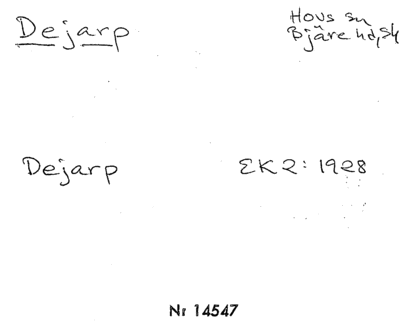 Dejarp
Hovs sn
Bjäre hd, Sk
Dejarp
EK2: 1928
Nr 14547